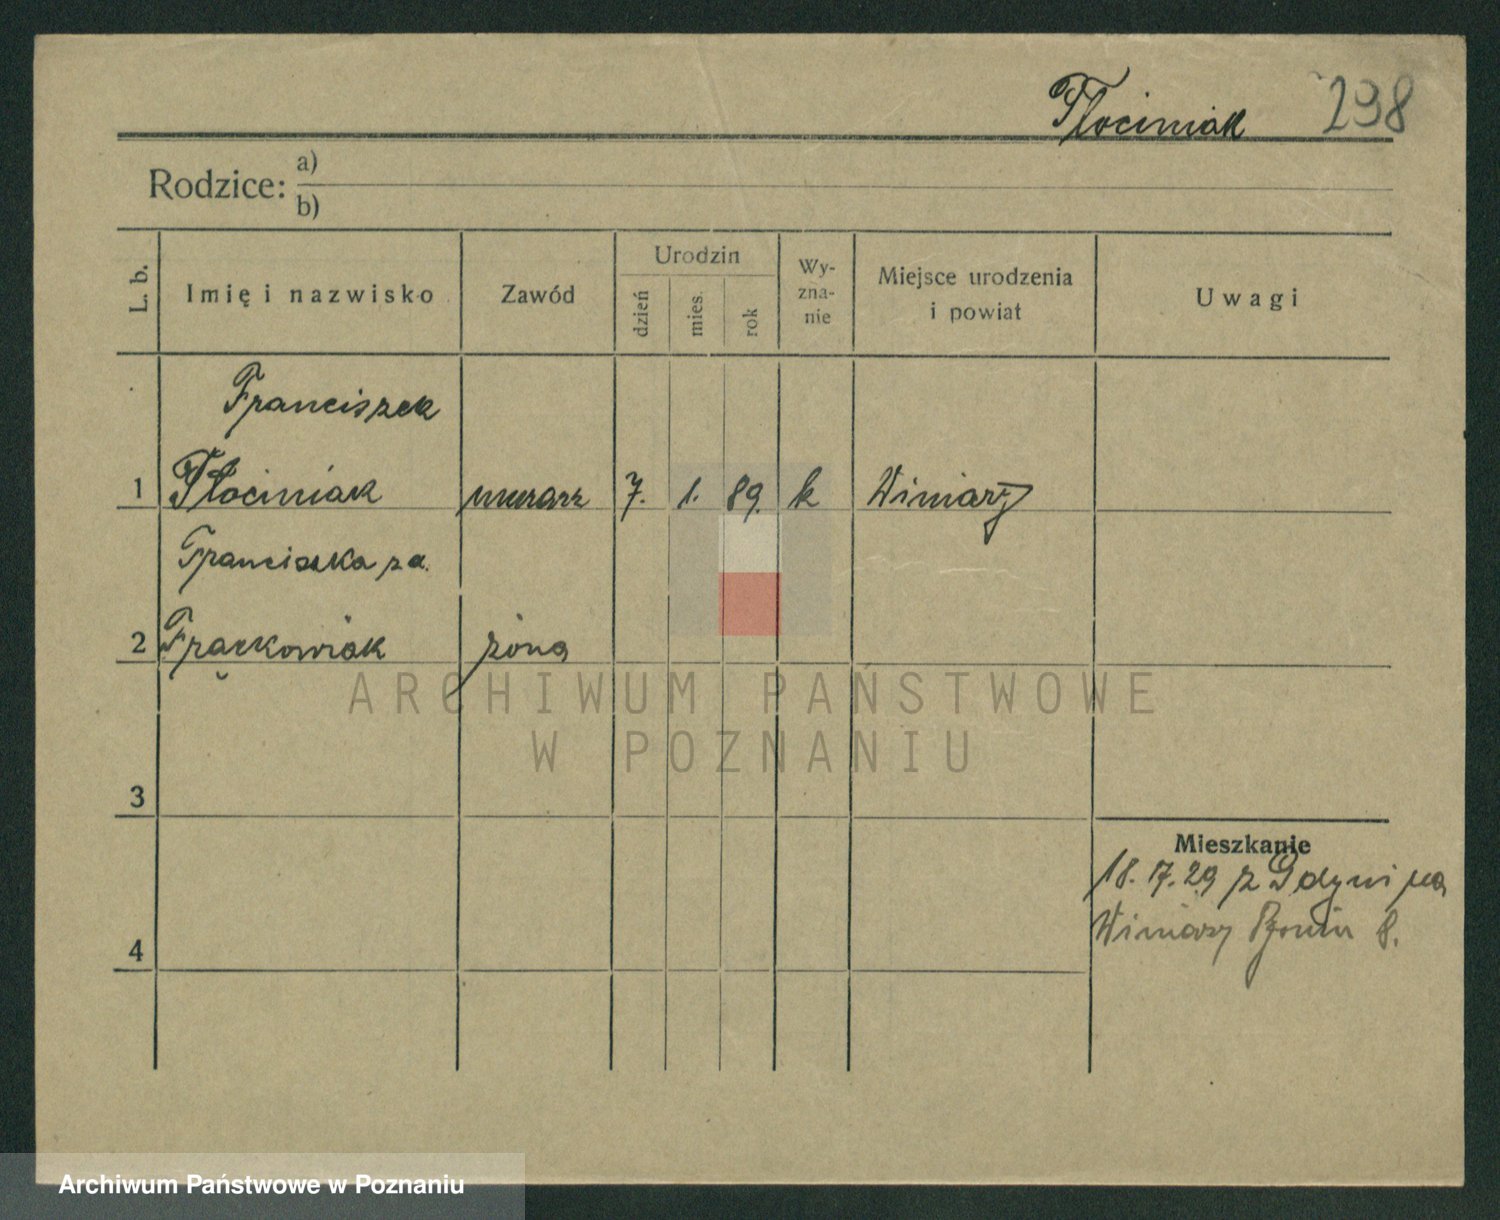 Płociniak 298
Rodzice: a)
b)
L. b. Imię i nazwisko Zawód Urodzin dzień mies. rok Wy-
zna-
nie Miejsce urodzenia
i powiat Uwagi
Franciszek
1 Płociniak murarz 7. 1. 89. k Winiary
Franciszka za.
2 Frąckowiak żona
3
4
Mieszkanie
18. 17. 29 z Gdyni na
Winiary 8.
ARCHIWUM PAŃSTWOWE
W POZNANIU
Archiwum Państwowe w Poznaniu